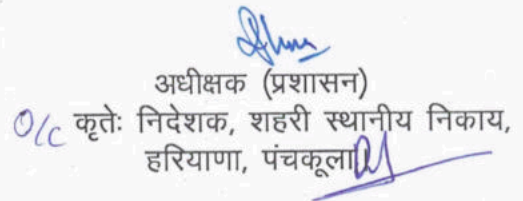 अधीक्षक (प्रशासन)
O/C कृतेः निदेशक, शहरी स्थानीय निकाय,
हरियाणा, पंचकूला।